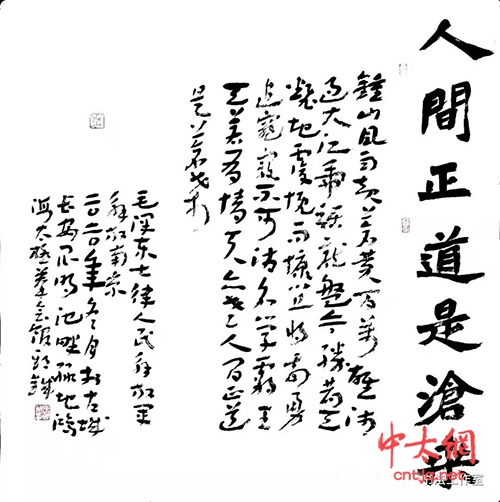 人間正道是滄桑
鍾山風雨起蒼黃百萬雄師
過大江虎踞龍盤今勝昔天
翻地覆慨而慷宜將剩勇
追窮寇不可沽名學霸王
天若有情天亦老人間正道
是滄桑
毛澤东七律人民解放軍
解放南京
二〇二〇年冬月於古城
長安昆明池畔
中大網
工作室